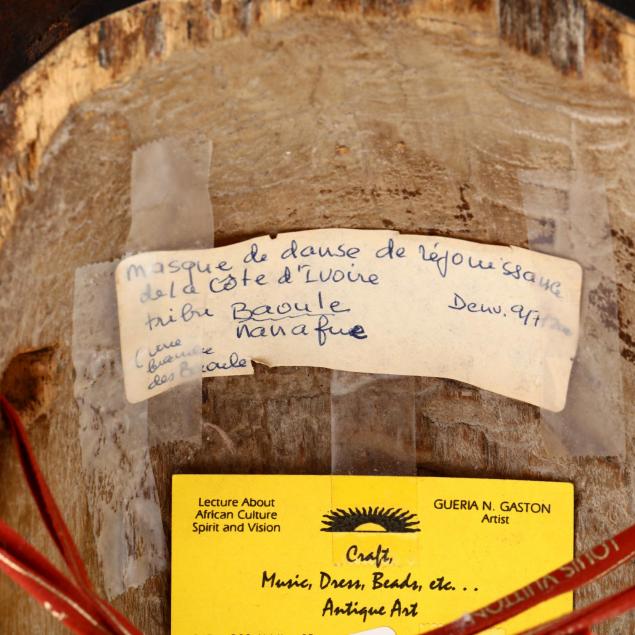 Masque de danse de réjouissance
de la Côte d'Ivoire
tribu Baoule
Denv. 9/7
nanafue
(une
branche
des Baoule
Lecture About
African Culture
Spirit and Vision
GUERIA N. GASTON
Artist
Craft,
Music, Dress, Beads, etc. . .
Antique Art
LOUIS VUITTON